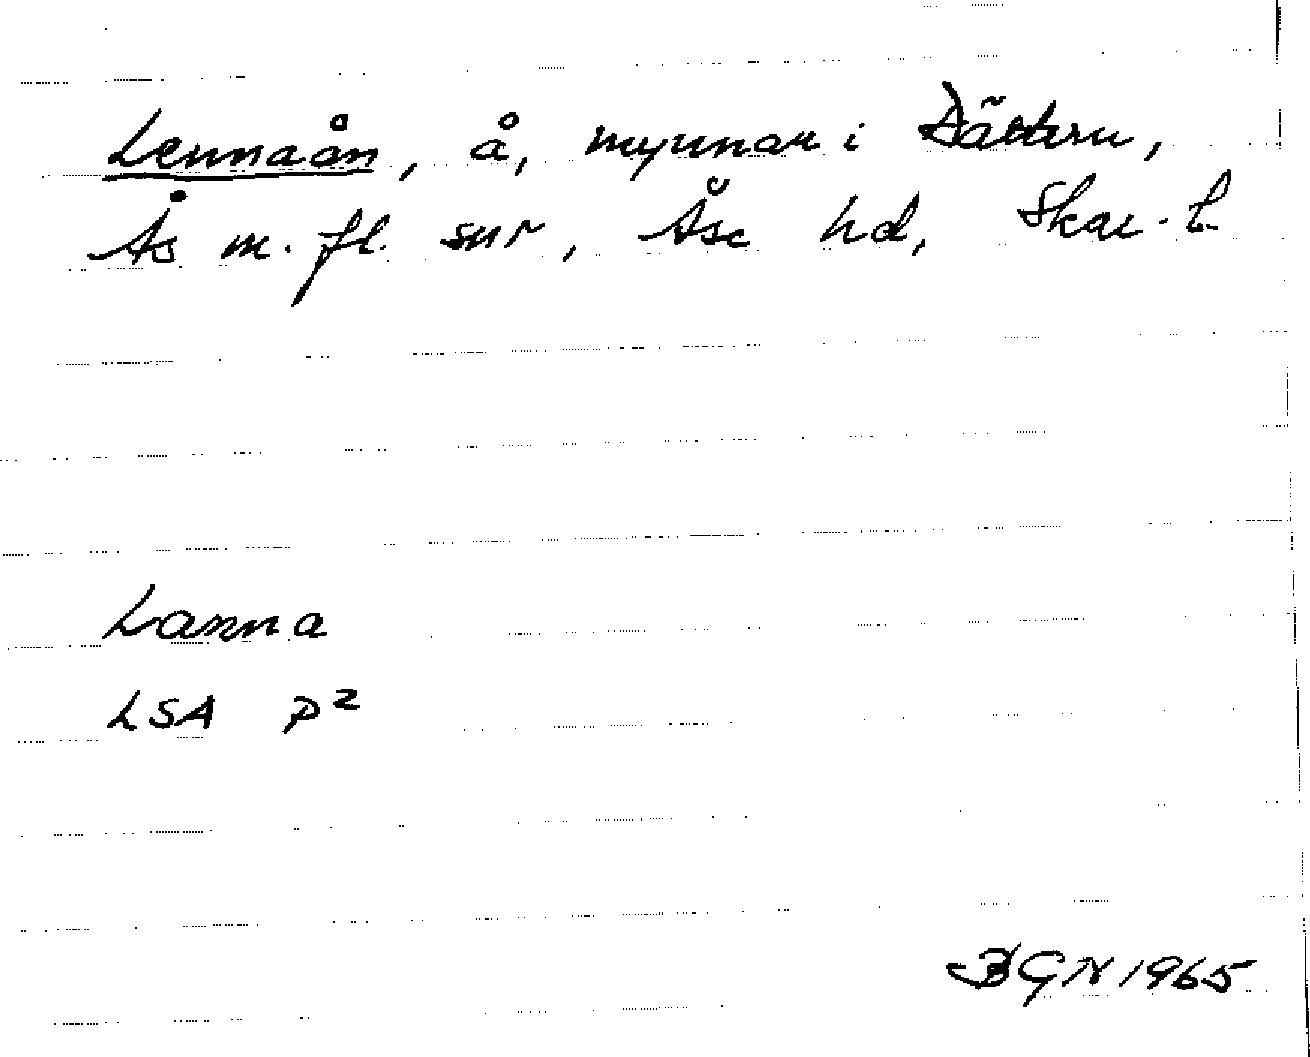 Lennaån, å, mynnar i Dättern,
Ås m. fl. snr, Åse hd, Skar. l.
Lanna
LSA P²
BGN 1965